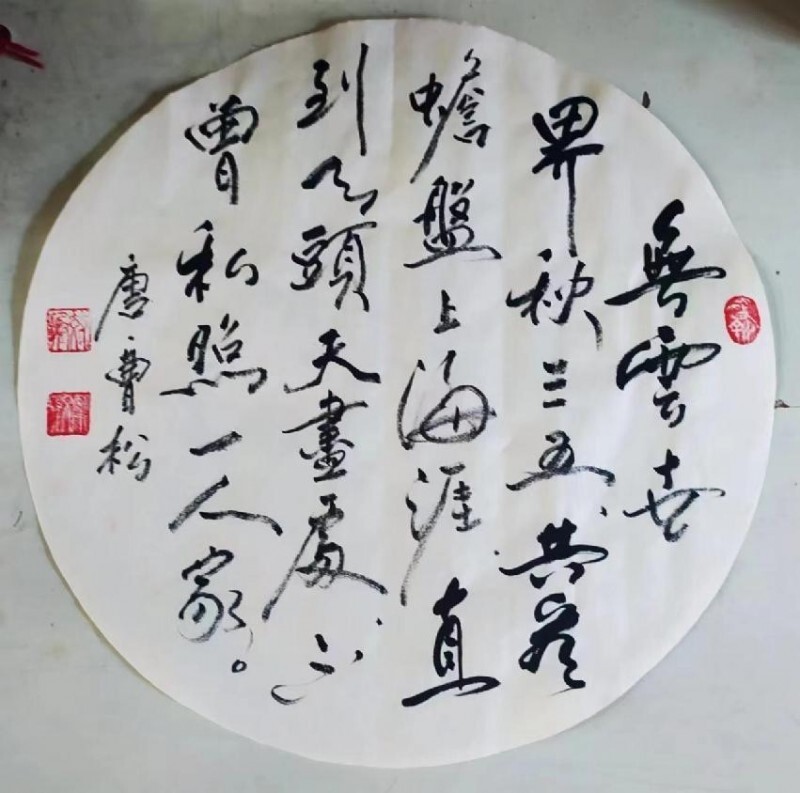 無雲世
界秋三五共看
蟾盤上海涯直
到天頭天盡處不
曾私照一人家。
唐·曹松